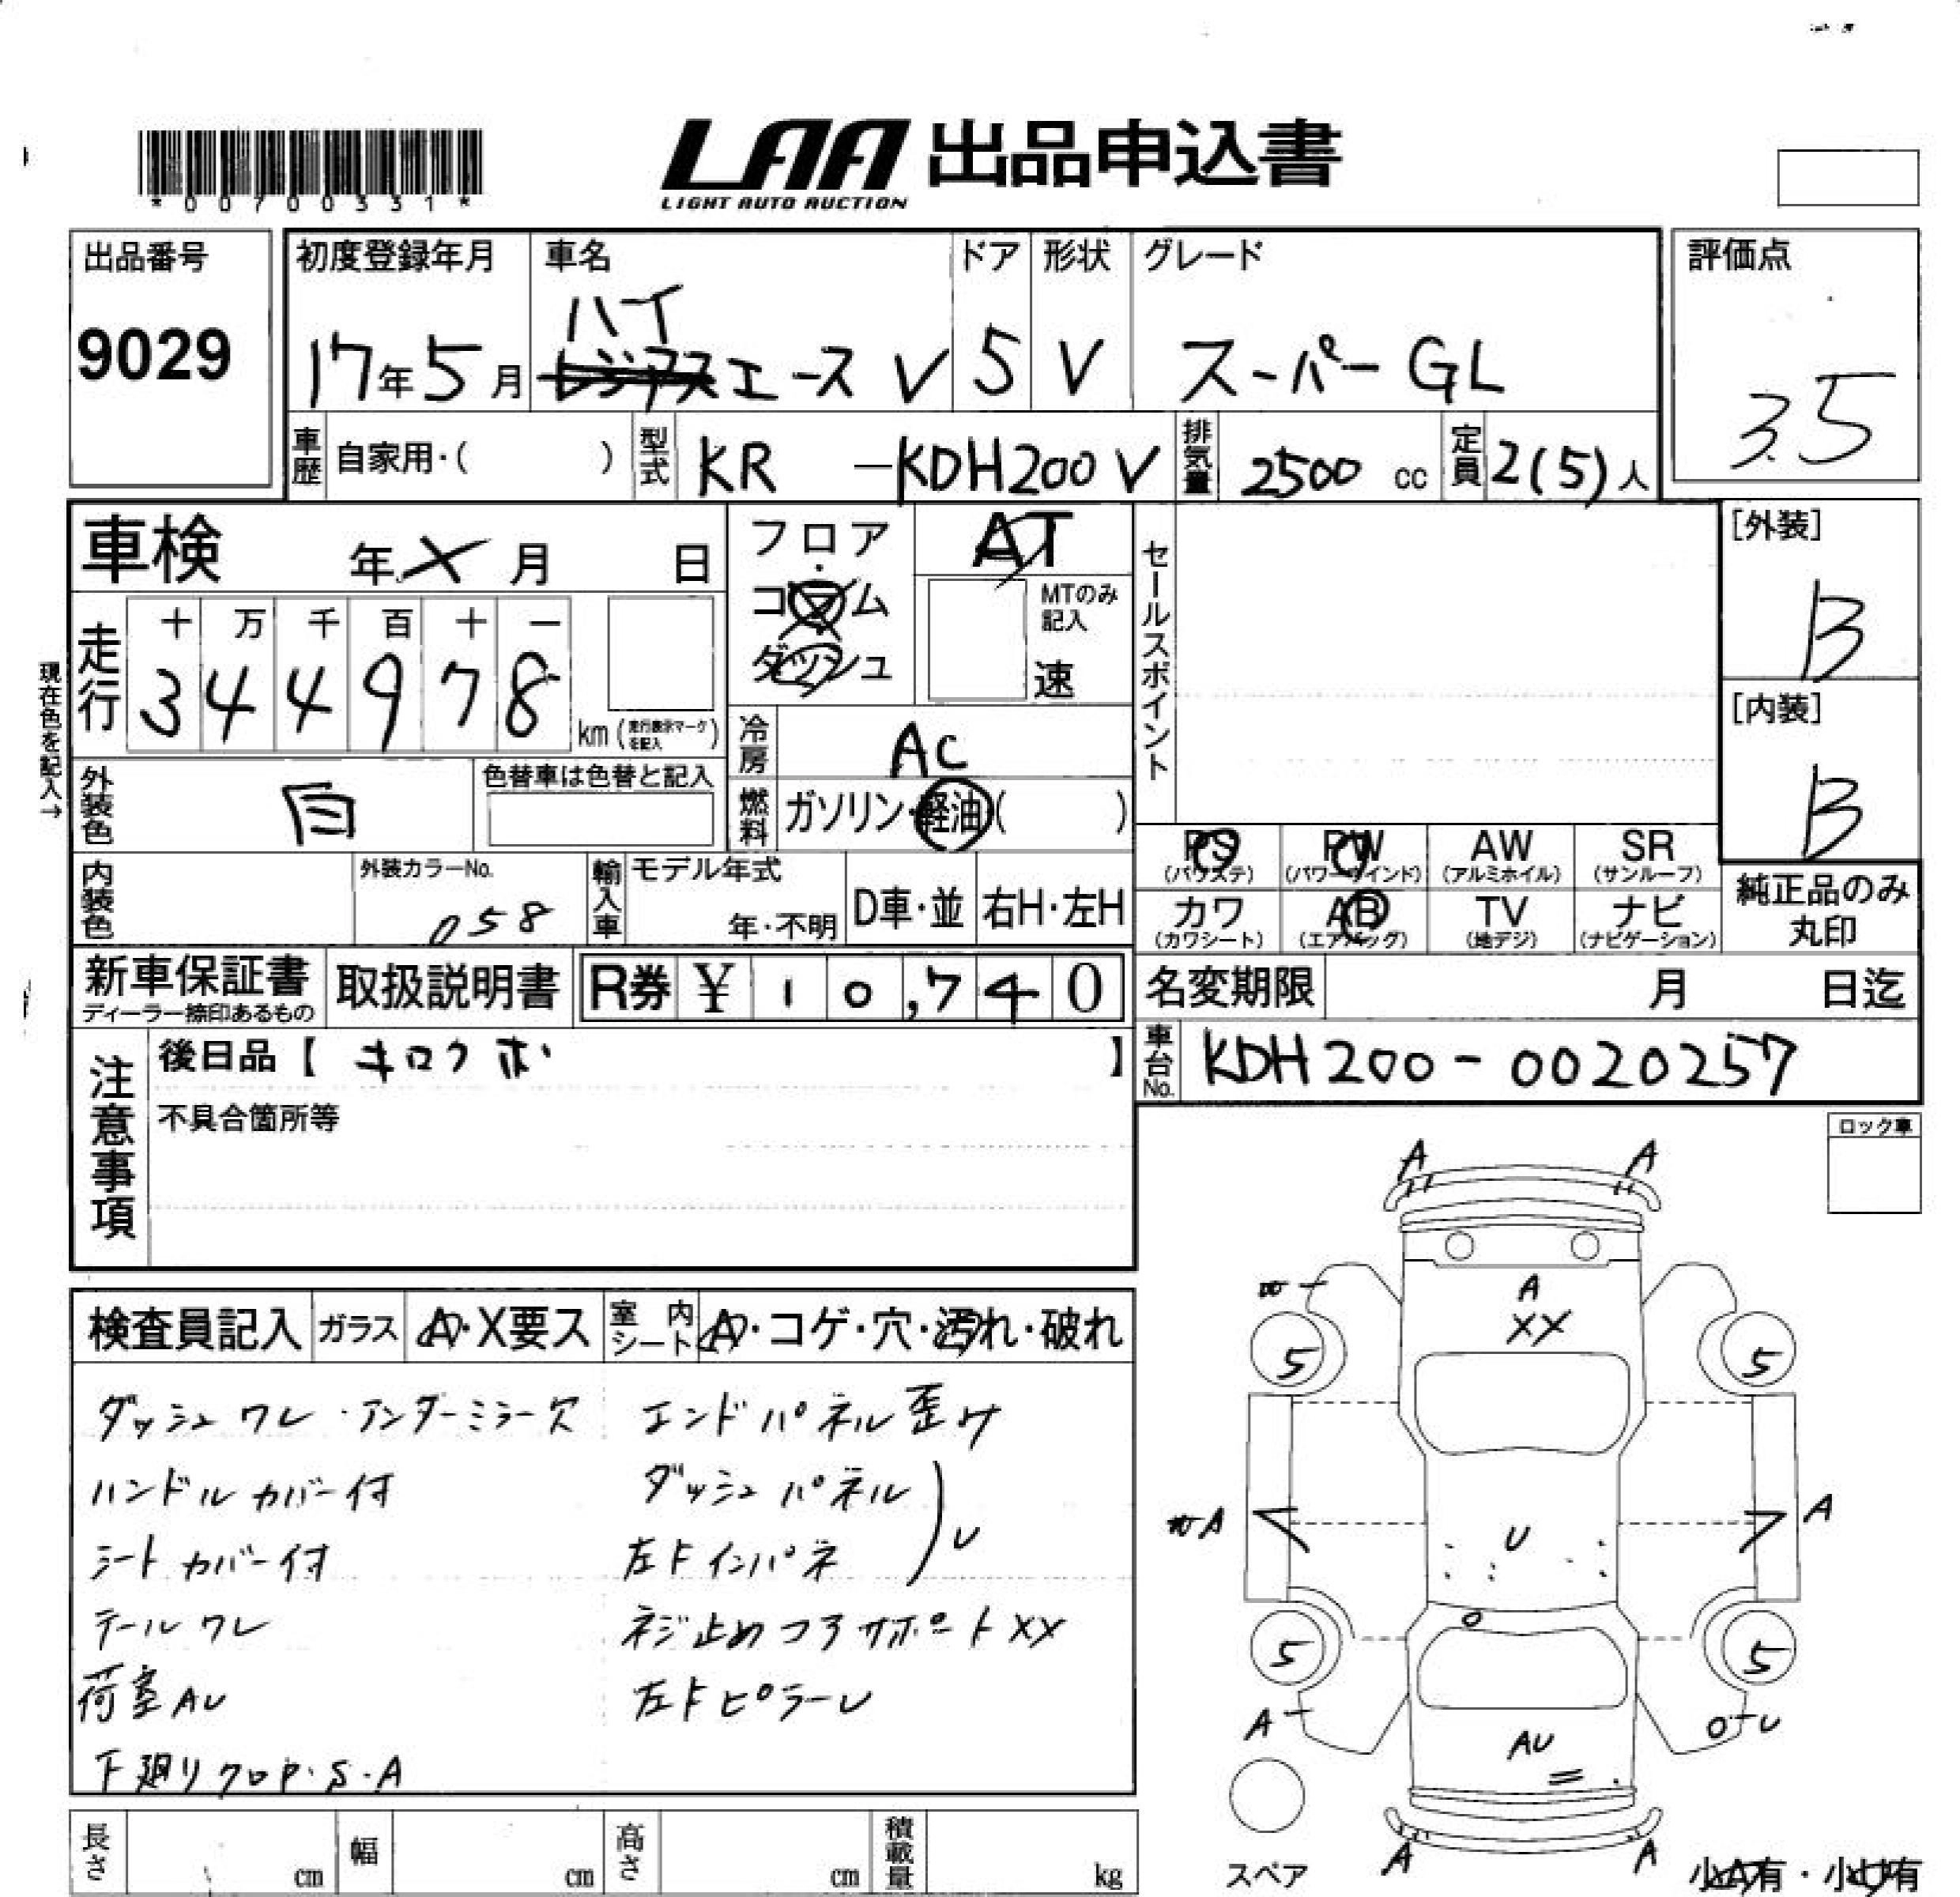 *00700331*
LAA 出品申込書
LIGHT AUTO AUCTION
出品番号
9029
初度登録年月
17年5月
車名
ハイ
レジアスエース V
ドア
5
形状
V
グレード
スーパーGL
評価点
3.5
車歴
自家用・( )
型式
KR -KDH200V
排気量
2500 cc
定員
2(5)人
車検 年 X 月 日
フロア・コラム
ダッシュ
AT
MTのみ記入
速
セールスポイント
[外装]
B
[内装]
B
現在色を記入→
走行
十 万 千 百 十 一
3 4 4 9 7 8
km (走行表示マークを記入)
冷房
AC
外装色
白
色替車は色替と記入
燃料
ガソリン・軽油( )
内装色
外装カラーNo.
058
輸入車
モデル年式
年・不明
D車・並
右H・左H
PS (パワステ)
PW (パワーウインド)
AW (アルミホイル)
SR (サンルーフ)
カワ (カワシート)
AB (エアバッグ)
TV (地デジ)
ナビ (ナビゲーション)
純正品のみ
丸印
新車保証書
ディーラー捺印あるもの
取扱説明書
R券 ¥ 10,740
名変期限 月 日迄
注意事項
後日品【 キロクボ 】
不具合箇所等
車台No.
KDH200-0020257
ロック車
検査員記入
ガラス
A・X要ス
室内シート
A・コゲ・穴・汚れ・破れ
ダッシュワレ・アンダーミラー欠
エンドパネル歪み
ハンドルカバー付
ダッシュパネル
シートカバー付
左Fインパネ
U
テールワレ
ネジ止めコアサポートXX
荷室AU
左FピラーU
下廻りクロP・S・A
A A
A
XX
5 5
A A
U
5 5
A U
AU
A A
スペア
小A有・小U有
長さ cm
幅 cm
高さ cm
積載量 kg